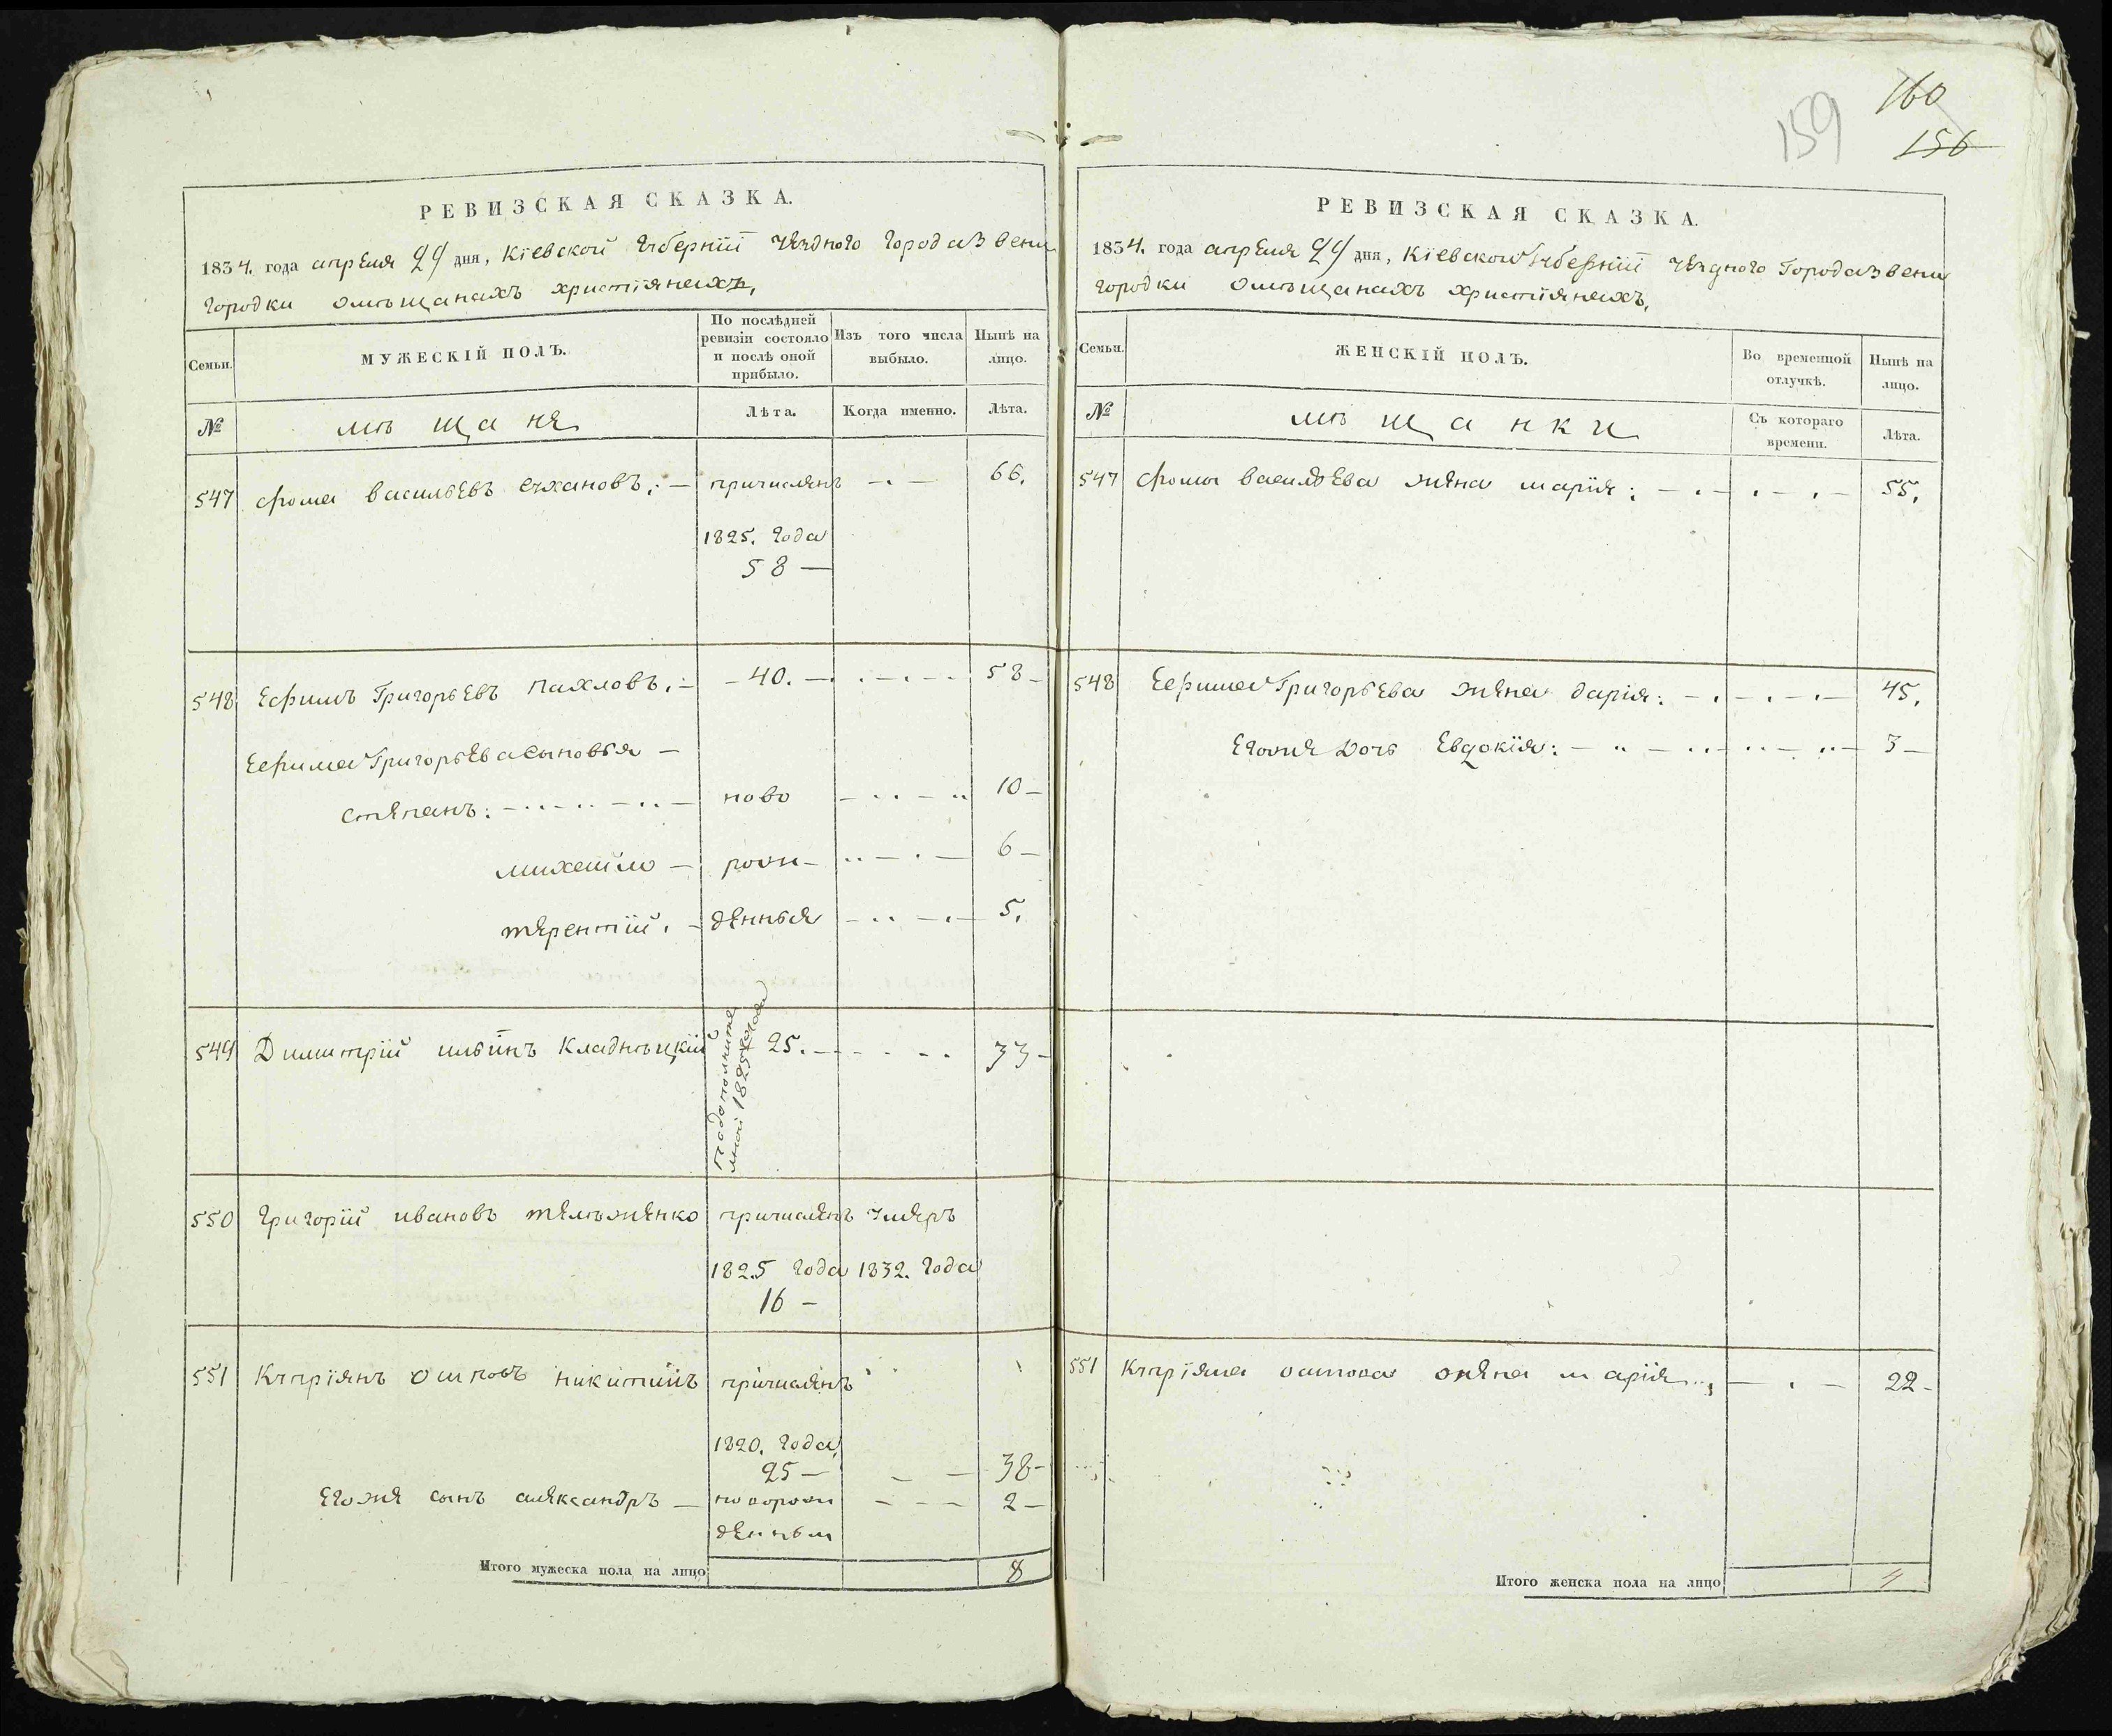 160
159
156
РЕВИЗСКАЯ СКАЗКА.
1834. года апреля 24 дня, Кіевской губерніи уезднаго города Звени
городки о мѣщанахъ христіянехъ,
Семьи.
МУЖЕСКІЙ ПОЛЪ.
По послѣдней ревизіи состояло и послѣ оной прибыло.
Изъ того числа выбыло.
Нынѣ на лицо.
№
мѣщане
Лѣта.
Когда именно.
Лѣта.
547 Фома Васильевъ Сухановъ: — причисленъ — . — 66.
1825. года
58 —
548 Ефимъ Григорьевъ Пахловъ. — — 40. — . — . — . — 58 —
Ефима Григорьева сыновья —
Степанъ: — ново — . . — . . 10 —
Михайло — рож — . . — . — 6 —
Терентій. — денныя — . . — . — 5.
549 Димитрій Ильинъ Кладнѣцкій 25. — — . . . 33 —
По дополните
ной 1825 года
550 Григорій Ивановъ причисленъ умеръ
1825 года 1832. года
16 —
551 Купріянъ Осиповъ Никитинъ причисленъ
1820. года,
25 — — — 38 —
Егоже сынъ Александръ — новорож — — — 2 —
денный
Итого мужеска пола на лицо 8
РЕВИЗСКАЯ СКАЗКА.
1834. года апреля 24 дня, Кіевской губерніи уезднаго города Звени
городки о мѣщанахъ христіянехъ,
Семьи.
ЖЕНСКІЙ ПОЛЪ.
Во временной отлучкѣ.
Нынѣ на лицо.
№
мѣщанки
Съ котораго времени.
Лѣта.
547 Фомы Васильева жена Марія: — . — . — . — 55.
548 Ефима Григорьева жена Дарія: — . — . — . — 45.
Егоже дочь Евдокія: — . . — . . — . . — 3 —
551 Купріяна Осипова жена Марія . . , — . — 22 —
Итого женска пола на лицо 4